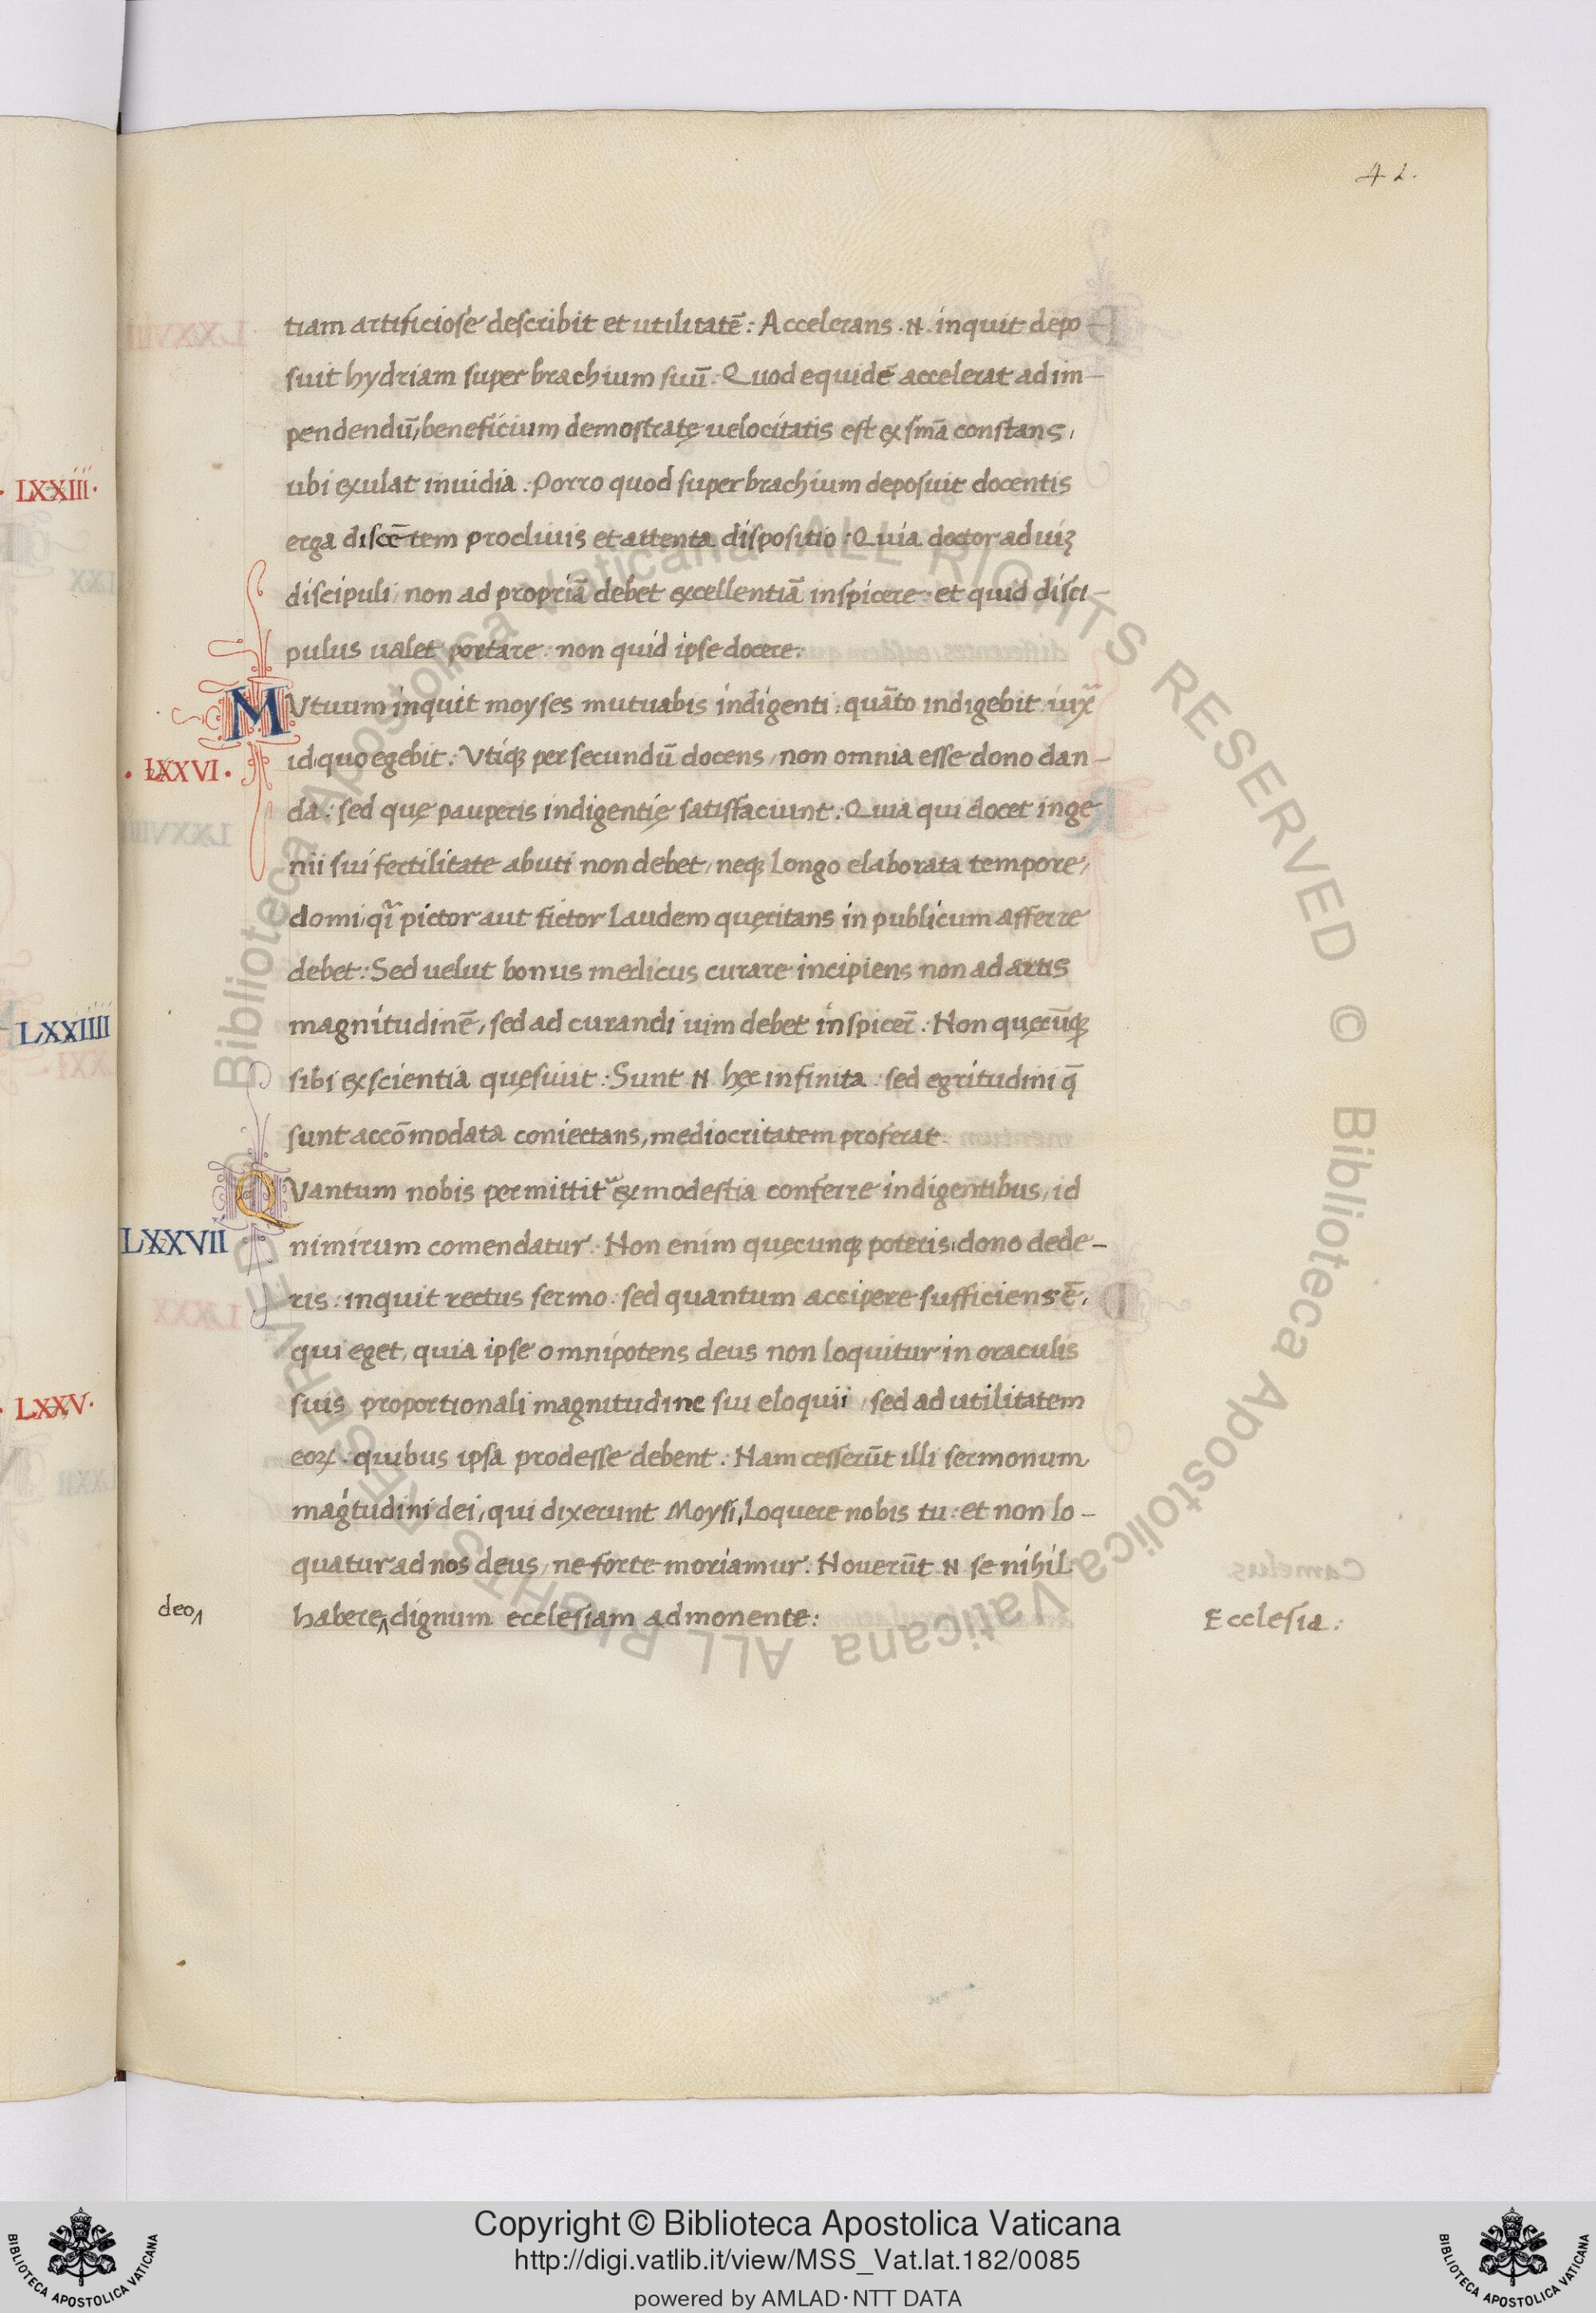 42.
tiam artificiose describit et utilitatē: Accelerans .N. inquit depo-
suit hydriam super brachium suū: Quod equidē accelerat ad im-
pendendū, beneficium demostratę uelocitatis est ex sm̄a constans,
ubi exulat inuidia: Porro quod super brachium deposuit docentis
erga discētem procliuis et attenta dispositio: Quia doctor ad uiꝫ
discipuli, non ad propriā debet excellentiā inspicere: et quid disci-
pulus ualet portare: non quid ipse docere:
MVtuum inquit moyses mutuabis indigenti: quāto indigebit iux̄
· LXXVI ·
id quo egebit: Vtiqꝫ per secundū docens, non omnia esse dono dan-
da: sed quę pauperis indigentię satisfaciunt: Quia qui docet inge
nii sui fertilitate abuti non debet, neqꝫ longo elaborata tempore,
domi, qī pictor aut fictor laudem quęritans in publicum afferre
debet: Sed uelut bonus medicus curare incipiens non ad artis
magnitudinē, sed ad curandi uim debet inspicer̄: Non quęcūqꝫ
sibi ex scientia quęsiuit: Sunt .N. hęc infinita: sed egritudini q̄
sunt accōmodata coniectans, mediocritatem proferat
QVantum nobis permittit᷑ ex modestia conferre indigentibus, id
LXXVII
nimirum comendatur: Non enim quęcunqꝫ poteris, dono dede-
ris: inquit rectus sermo: sed quantum accipere sufficiens ē,
qui eget, quia ipse omnipotens deus non loquitur in oraculis
suis proportionali magnitudine sui eloquii, sed ad utilitatem
eoꝝ: quibus ipsa prodesse debent: Nam cesserūt illi sermonum
mag̍tudini dei, qui dixerunt Moysi, Loquere nobis tu: et non lo-
quatur ad nos deus, ne forte moriamur: Nouerūt .N. se nihil
deo^ habere^ dignum ecclesiam admonente: Ecclesia:
· LXXIII ·
LXXIIII
· LXXV ·
Copyright © Biblioteca Apostolica Vaticana
http://digi.vatlib.it/view/MSS_Vat.lat.182/0085
powered by AMLAD·NTT DATA
BIBLIOTECA APOSTOLICA VATICANA
BIBLIOTECA APOSTOLICA VATICANA
Biblioteca Apostolica Vaticana ALL RIGHTS RESERVED © Biblioteca Apostolica Vaticana ALL RIGHTS RESERVED ©